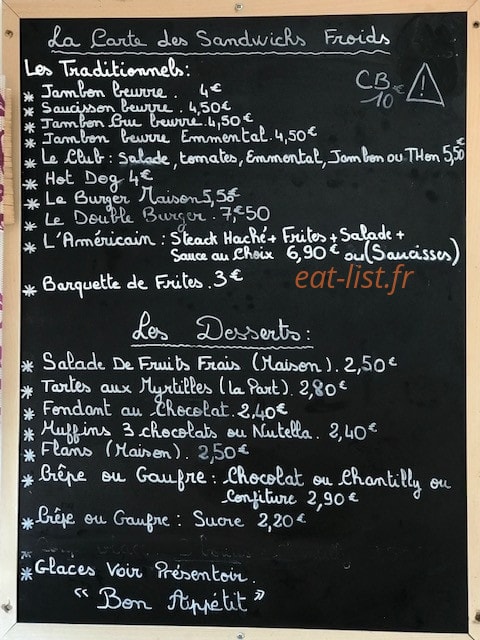 La Carte des Sandwichs Froids
Les Traditionnels:
CB 10€ !
* Jambon beurre. 4€
* Saucisson beurre. 4,50€
* Jambon Cru beurre. 4,50€
* Jambon beurre Emmental. 4,50€
* Le Club: Salade, tomates, Emmental, Jambon ou THon 5,50€
* Hot Dog 4€
* Le Burger Maison 5,50€
* Le Double Burger. 7,€50
* L'Américain: Steack Haché + Frites + Salade +
Sauce au Choix 6,90€ ou (Saucisses)
* Barquette de Frites. 3€
eat-list.fr
Les Desserts:
* Salade De Fruits Frais (Maison). 2,50€
* Tartes aux Myrtilles (la Part). 2,80€
* Fondant au Chocolat. 2,40€
* Muffins 3 chocolats ou Nutella. 2,40€
* Flans (Maison). 2,50€
* Crêpe ou Gaufre: Chocolat ou Chantilly ou
Confiture 2,90€
* Crêpe ou Gaufre: Sucre 2,20€
* Glaces Voir Présentoir.
"Bon Appétit"